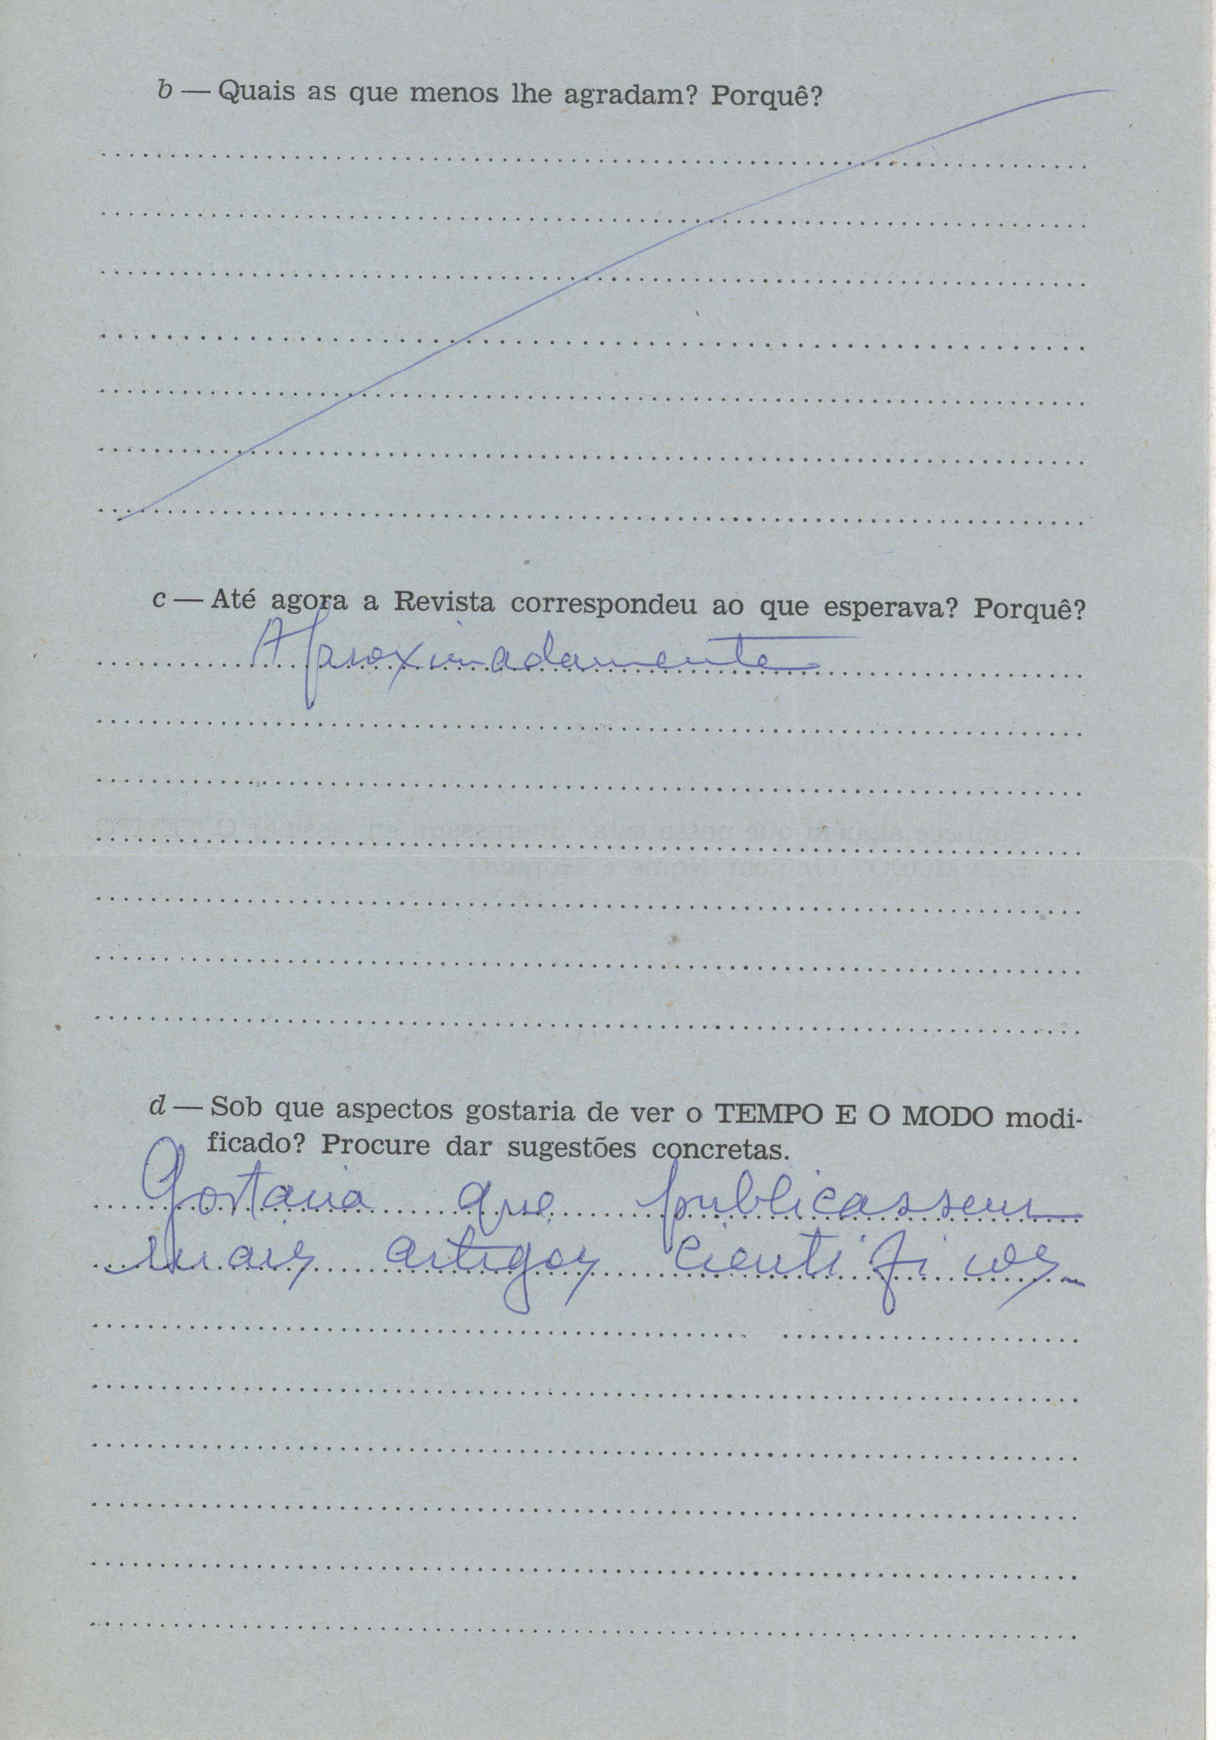 b — Quais as que menos lhe agradam? Porquê?
c — Até agora a Revista correspondeu ao que esperava? Porquê?
Aproximadamente
d — Sob que aspectos gostaria de ver o TEMPO E O MODO modi-
ficado? Procure dar sugestões concretas.
Gostaria que publicassem
mais artigos cientificos